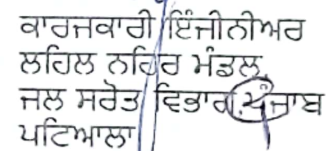 ਕਾਰਜਕਾਰੀ ਇੰਜੀਨੀਅਰ
ਲਹਿਲ ਨਹਿਰ ਮੰਡਲ
ਜਲ ਸਰੋਤ ਵਿਭਾਗ ਪੰਜਾਬ
ਪਟਿਆਲਾ